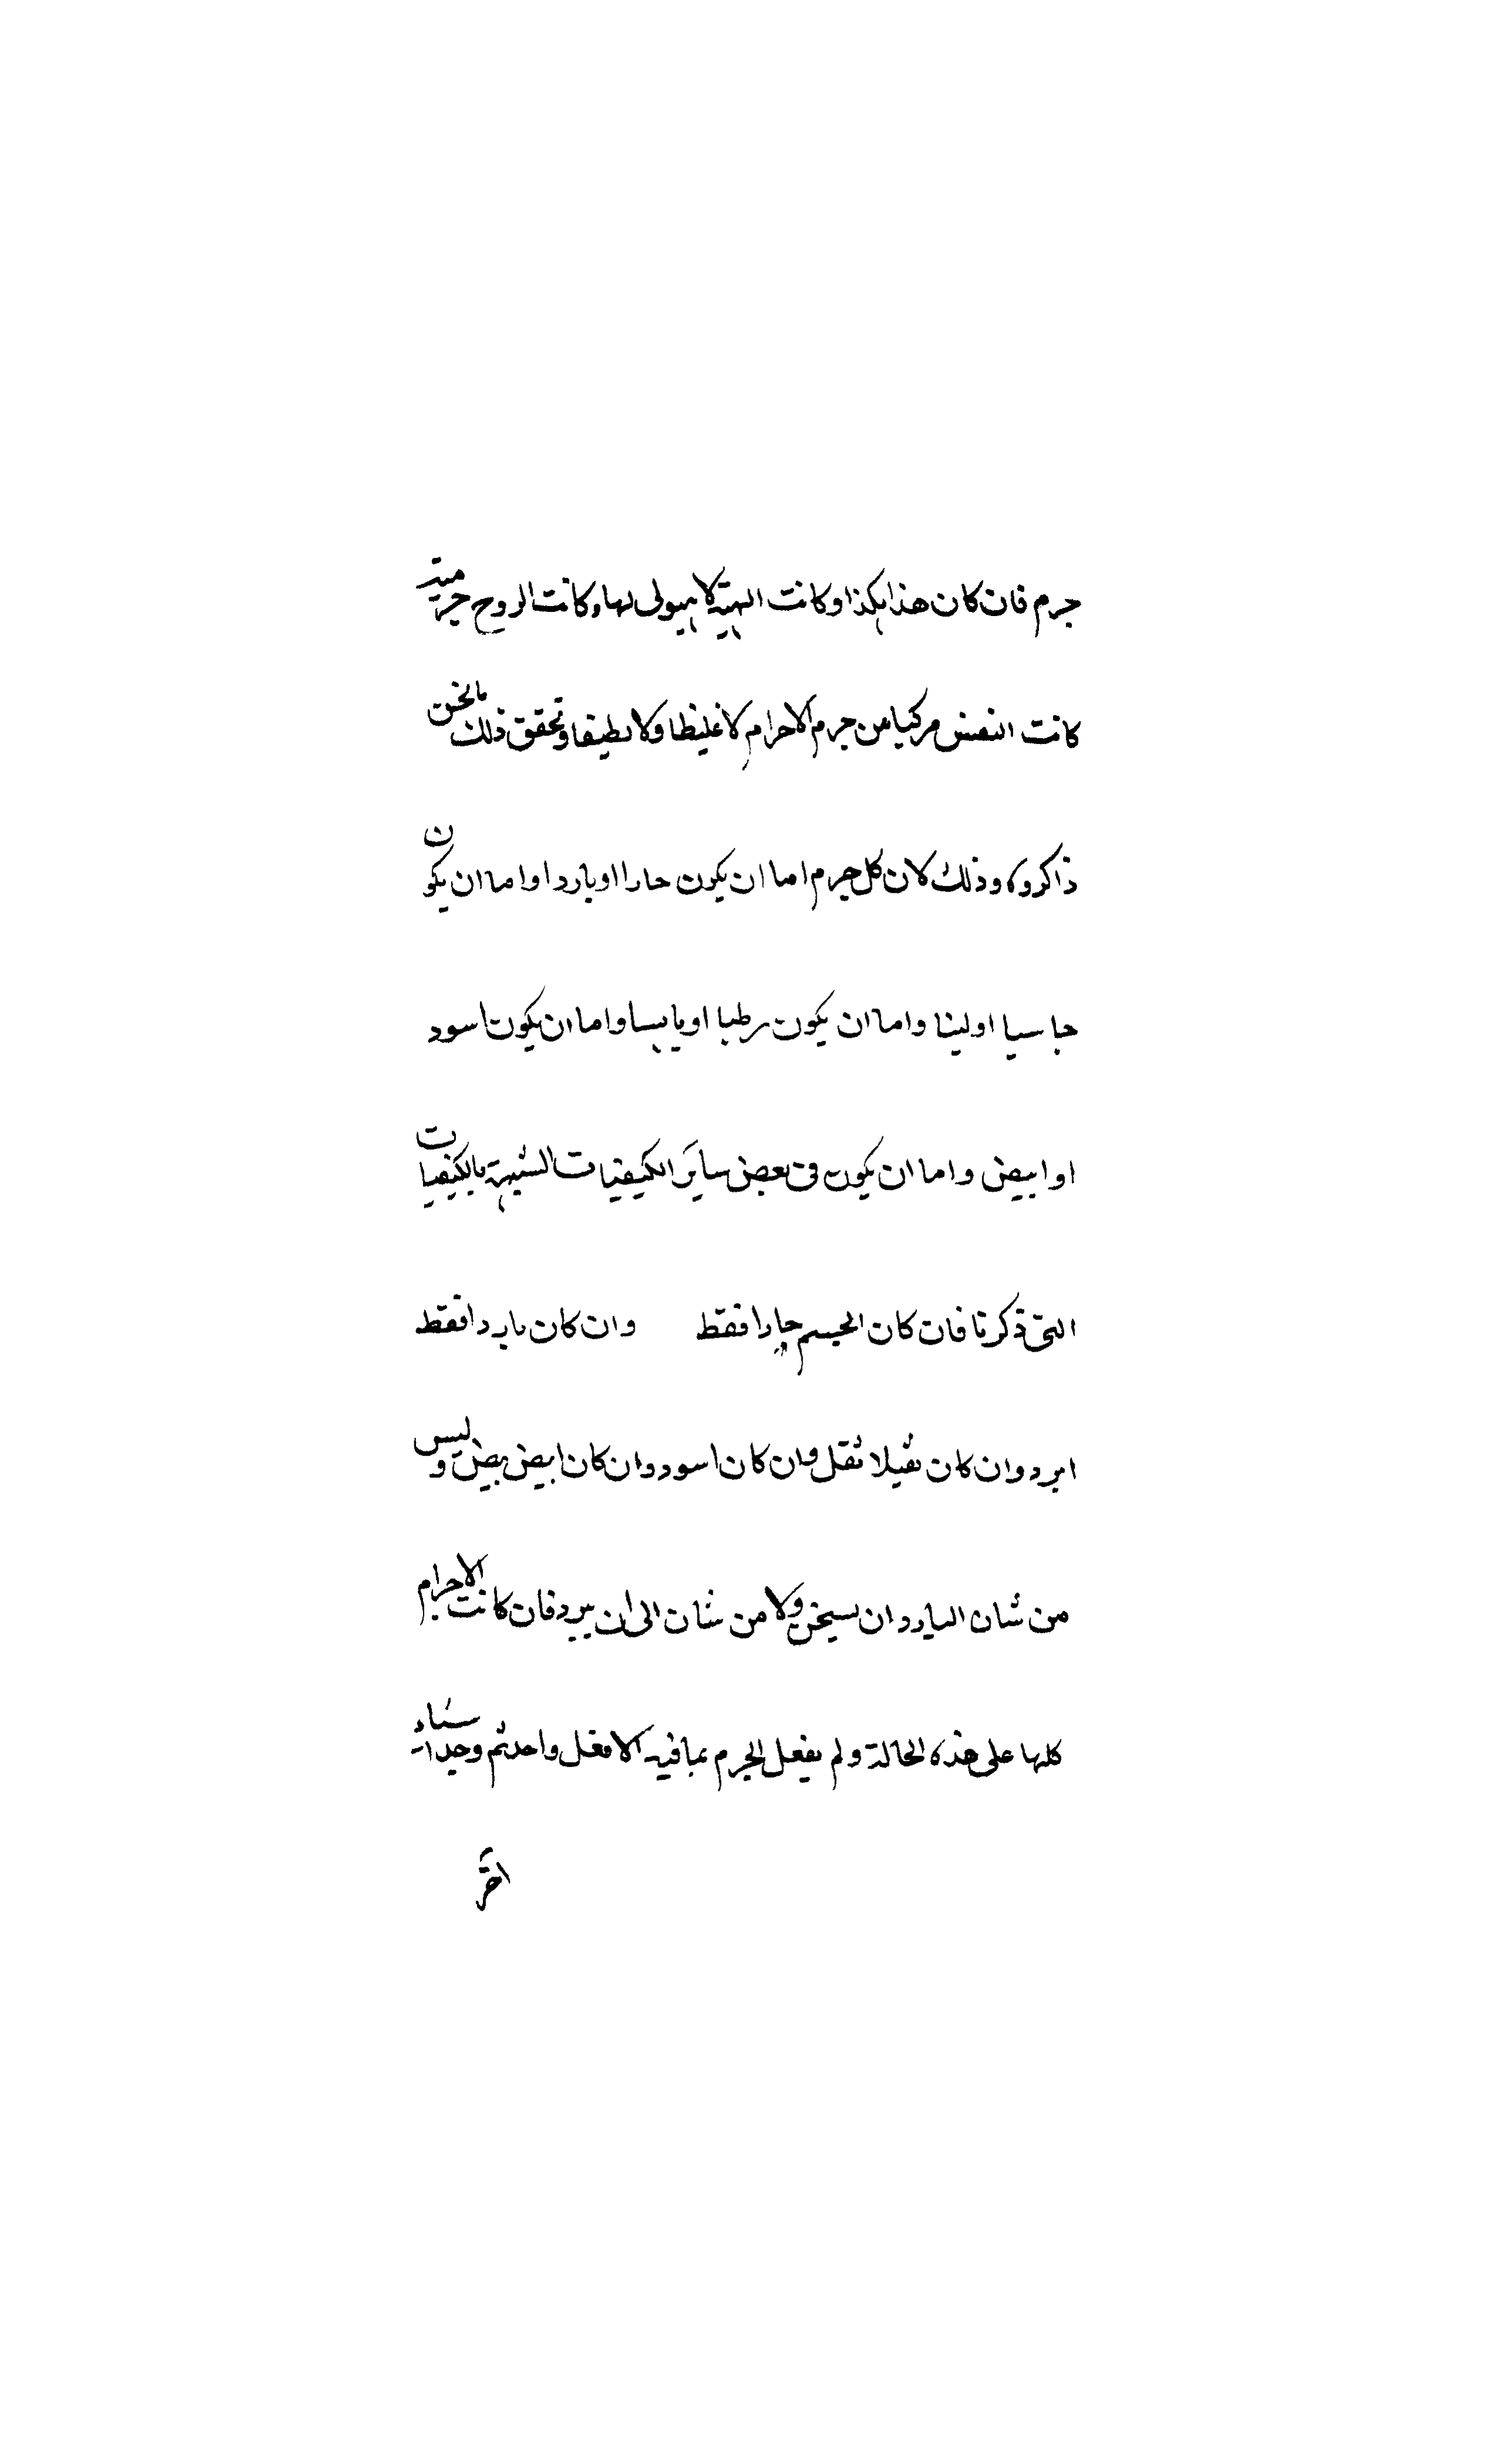 جرم فان كان هذا هكذا وكانت الهيئة لا هيولى لها وكانت الروح جرمية
كانت النفس مركبا من جرم الاجرام لا غليظا ولا لطيفا وتحقق ذلك ما نحن
ذاكروه وذلك لان كل جرم اما ان يكون حارا او باردا واما ان يكون
جاسيا او لينا واما ان يكون رطبا او يابسا واما ان يكون اسود
او ابيض واما ان يكون فى بعض ساير الكيفيات الشبيهة بالكيفيات
التى ذكرنا فان كان الجسم حارا فقط وان كان باردا فقط
ابرد وان كان ثقيلا ثقل وان كان اسود وان كان ابيض بيض وليس
من شان البارد ان يسخن ولا من شان الى ان يبرد فان كانت الاجرام
كلها على هذه الحالة ولم يفعل الجرم بما فيه الا فعل واحد ثم وجدا
اخر